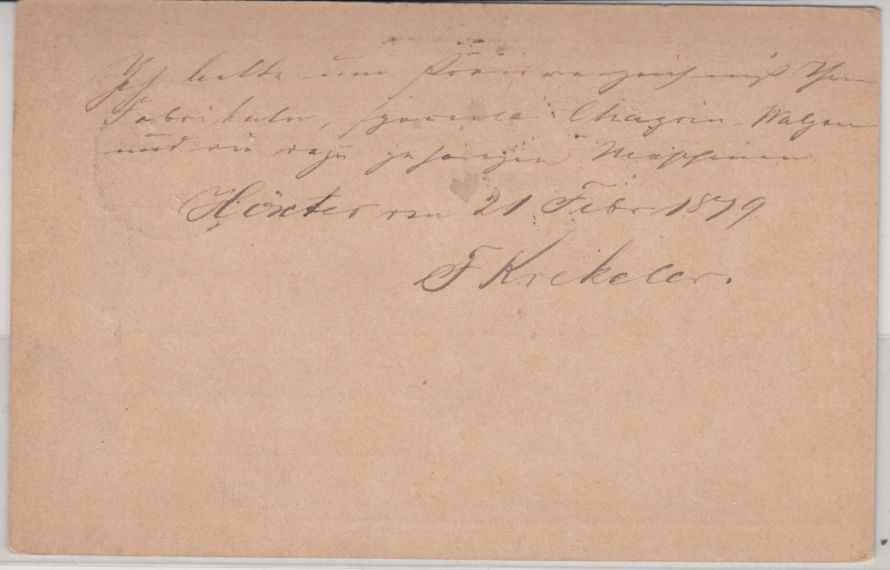 Ich bitte um Preisverzeichniß Ihrer
Fabrikate, speciele Chagrin-Walzen
und die dazu gehörigen Maschinen
Höxter den 21 Febr 1879
F Krekeler.